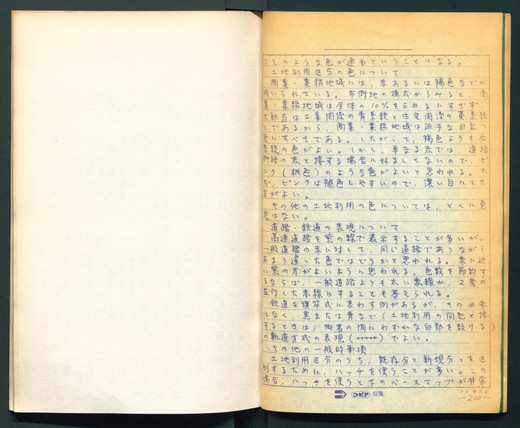 ぶどのような色が適当ということになる。
土地利用区分の色について
商業・業務地域には、赤あるいは褐色などが
用いられている。市街地の構成からみると、商
業・業務地域は全体の10%を占めるにすぎず、
大部分は工業関係の青系統と住宅関係の黄系統
とであるから、商業・業務地域は派手な目立つ
色にすべきである。したがって、褐色よりも赤
系統の色がよい。しかし、単なる赤では、道路
関係の赤と接する場合に好ましくないので、ピ
ンク(桃色)のような色がよいと思われる。た
だ、ピンクは褪色しやすいので、濃い目にした
方がよい。
その他の土地利用の色については、とくに意
見はない。
道路・鉄道の表現について
高速道路を紫の線で表示することが多いが、
一般道路の赤に対して、同じ道路でありながら
あまり違った色ではどうかと思われる。赤に近
い紫の方がよいように思われる。色数を節約す
るならば、一般道路よりも太い赤線か、2条の
並行した赤線にすることも考えられる。
鉄道を横竿式に表わす例があるが、その必要
はなく、黒または青など(土地利用の同色と接
するときは、両者の間にわずかな白部を設ける)
の軌道方式の表現()でよい。
その他の一般的事項
土地利用区分のうち、既存分と新規分とを区
別するために、ハッチを使うことが多い。この
場合、ハッチを使うと下のベースマップが非常
コピア